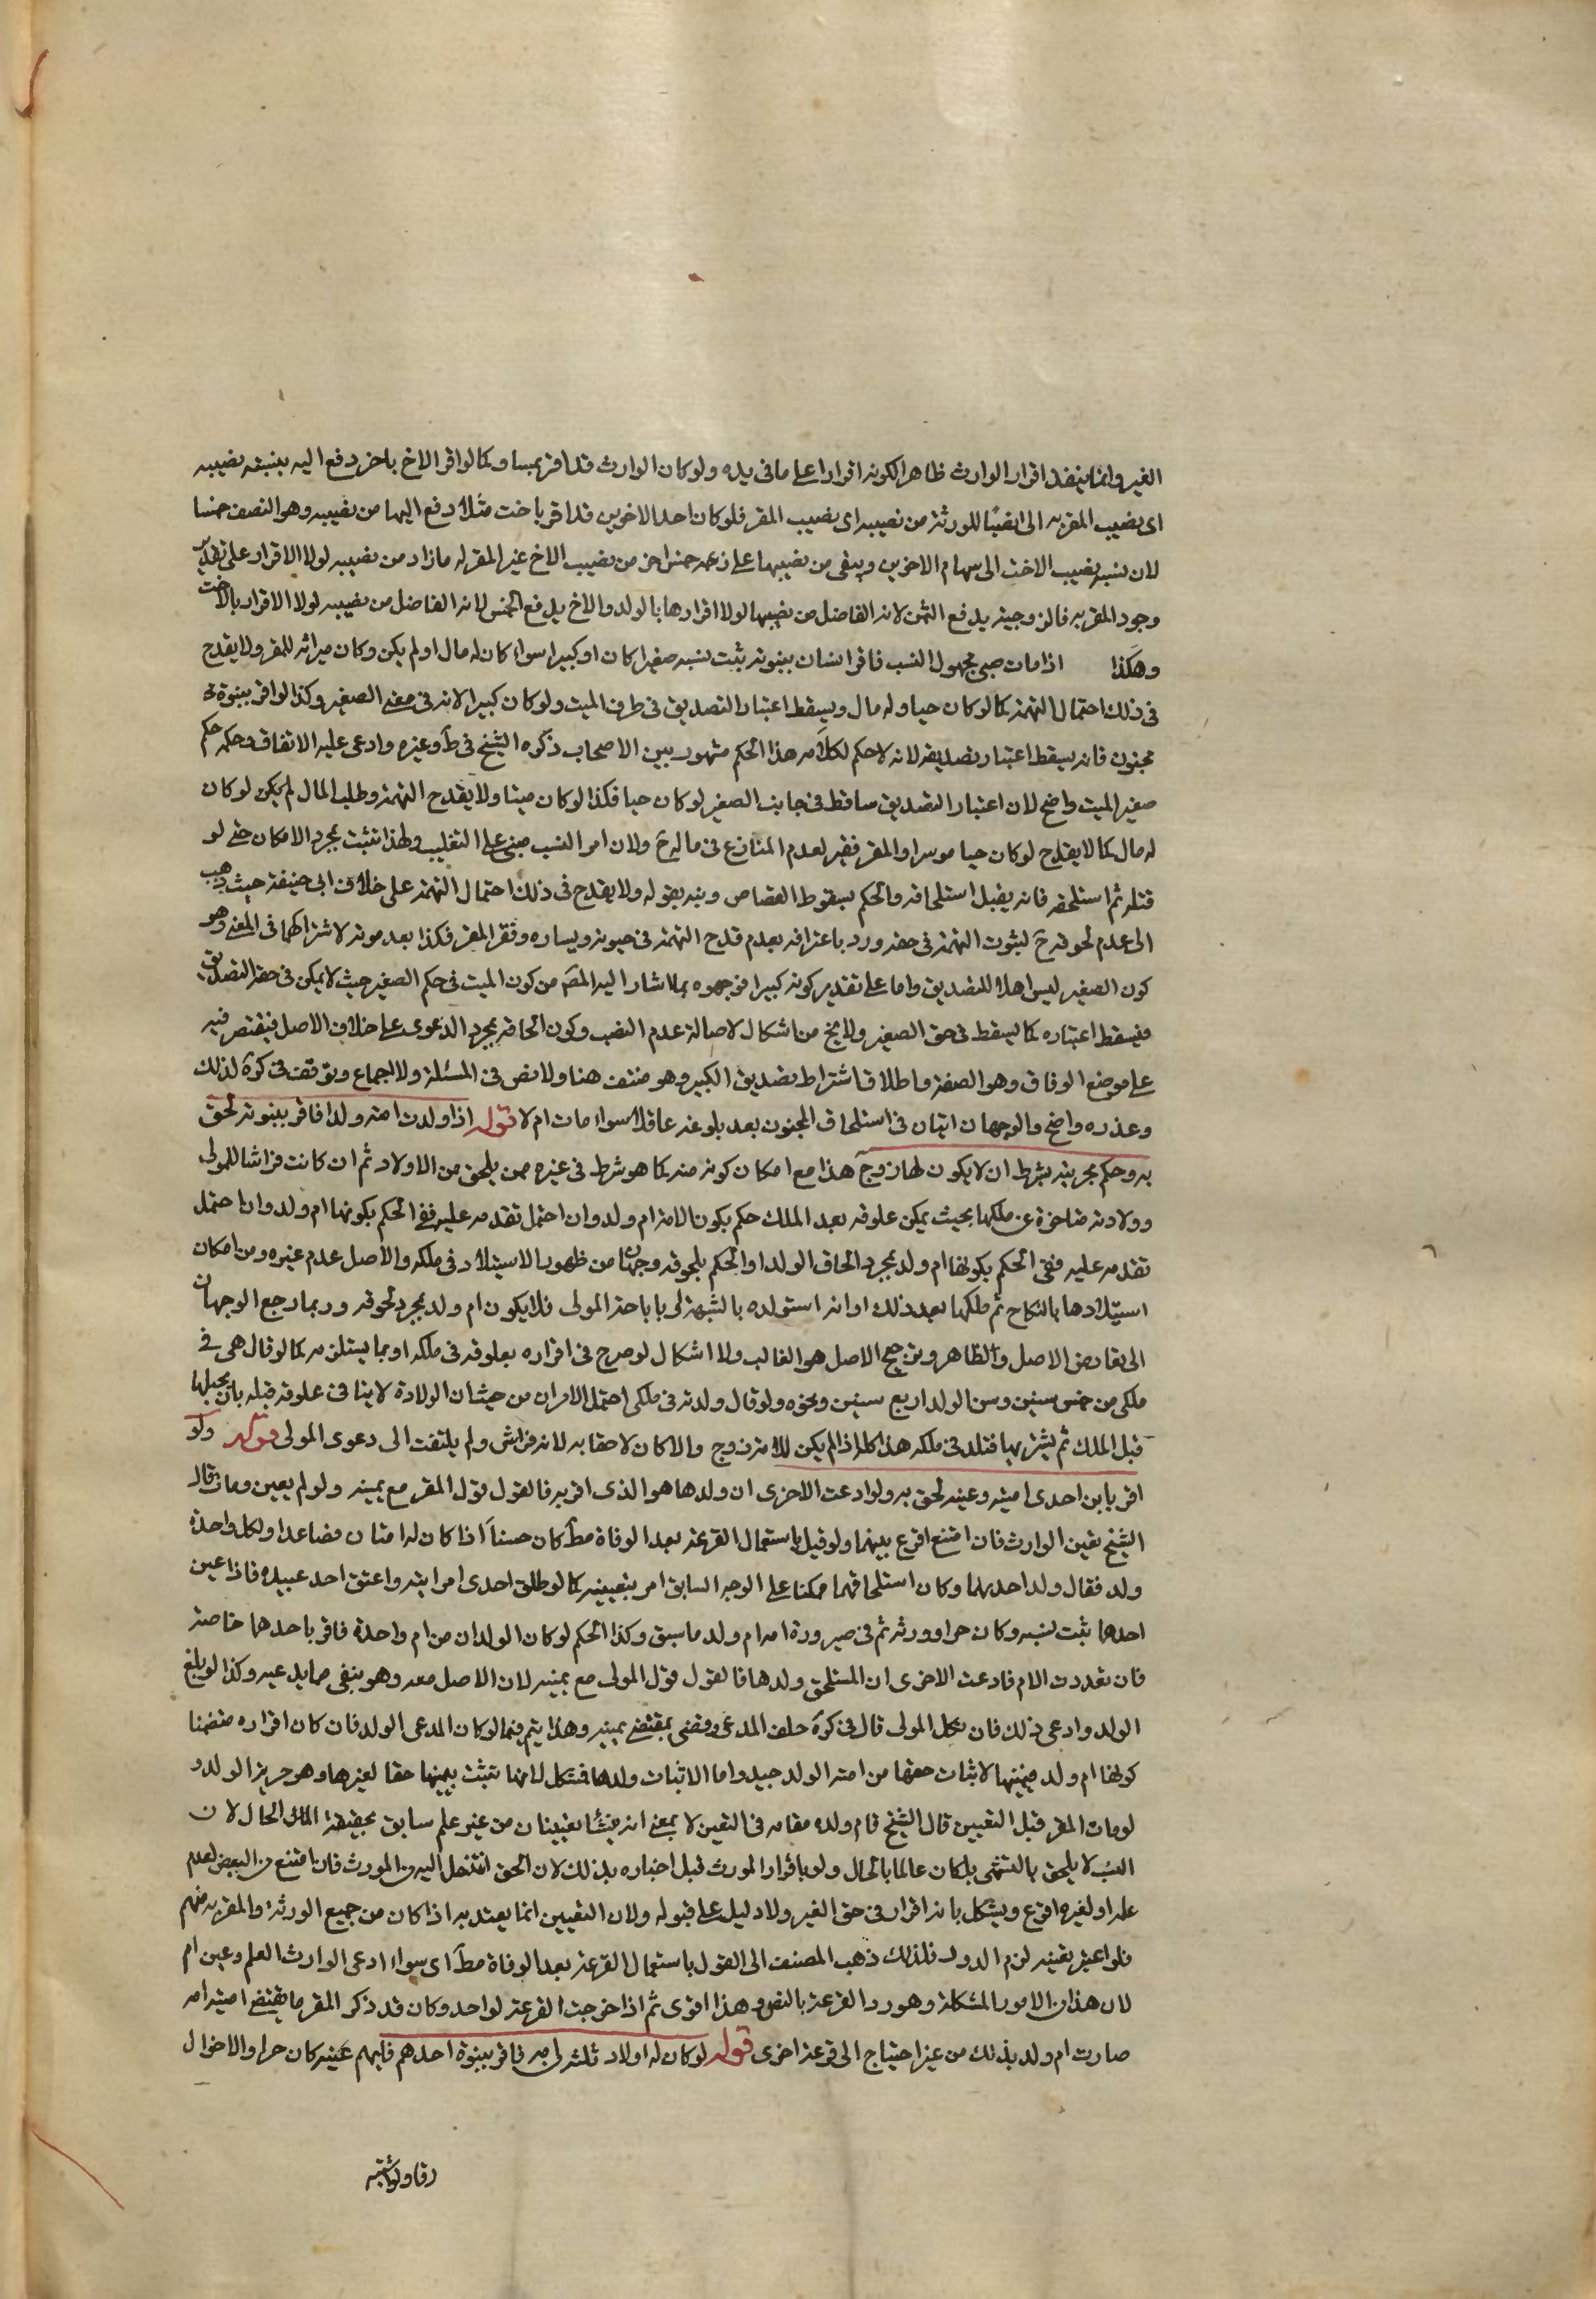 الغير وانما ينفذ اقرار الوارث ظاهرا لكونه اقرارا على ما فى يده ولو كان الوارث قد اقر بمساو كما لو اقر الاخ باخر دفع اليه بنسبة نصيبه
اى نصيب المقر به الى انصباء الورثة من نصيبه اى نصيب المقر فلو كان احد الاخوين قد اقر باخت مثلا دفع اليها من نصيبه وهو النصف خمسا
لان نسبة نصيب الاخت الى سهام الاخوين ويبقى من نصيبها على زعمه خمس اخر من نصيب الاخ غير المقر له ما زاد من نصيبه لولا الاقرار على تقدير
وجود المقر به فالزوجية يدفع الثمن لانه الفاضل من نصيبها لولا اقرارها بالولد والاخ يدفع الخمس لانه الفاضل من نصيبه لولا الاقرار بالاخت
وهكذا اذا مات صبى مجهول النسب فاقر انسان ببنوته يثبت نسبه صغيرا كان او كبيرا سواء كان له مال او لم يكن وكان ميراثه للمقر ولا يقدح
فى ذلك احتمال التهمة كما لو كان حيا وله مال ويسقط اعتبار التصديق فى طرف الميت ولو كان كبيرا لانه فى معنى الصغير وكذا لو اقر ببنوة
مجنون فانه يسقط اعتبار تصديقه لانه لا حكم لكلامه هذا الحكم مشهور بين الاصحاب ذكره الشيخ فى ط وغيره وادعى عليه الاتفاق وحكمه حكم
صغير الميت واضح لان اعتبار التصديق ساقط فى جانب الصغير لو كان حيا فكذا لو كان ميتا ولا يقدح التهمة وطلب المال لم يكن لو كان
له مال كما لا يقدح لو كان حيا موسرا والمقر فقير لعدم المنازع فى ماله ح ولان امر النسب مبنى على التغليب ولهذا تثبت بمجرد الامكان حتى لو
قتله ثم استلحقه فانه يقبل استلحاقه والحكم بسقوط القصاص ونبه بقوله ولا يقدح فى ذلك احتمال التهمة على خلاف ابى حنيفة حيث ذهب
الى عدم لحوقه ح لثبوت التهمة فى حقه ورد باعترافه بعدم قدح التهمة فى حيوته ويساره وفقر المقر فكذا بعد موته لاشتراكهما فى المعنى وهو
كون الصغير ليس اهلا للتصديق واما على تقدير كونه كبيرا فوجهوه بما اشار اليه المص من كون الميت فى حكم الصغير حيث لا يمكن فى حقه التصديق
فيسقط اعتباره كما يسقط فى حق الصغير ولا يخ من اشكال لاصالة عدم النسب وكون الحاقه بمجرد الدعوى على خلاف الاصل فيقتصر فيه
على موضع الوفاق وهو الصغر واطلاق اشتراط تصديق الكبير وهو منتف هنا ولا نص فى المسئلة ولا اجماع وتوقف فى كرة لذلك
وعذره واضح والوجهان اتيان فى استلحاق المجنون بعد بلوغه عاقلا سواء مات ام لا قوله اذا ولدت امته ولدا فاقر ببنوته لحق
به وحكم بحريته بشرط ان لا يكون لها زوج هذا مع امكان كونه منه كما هو شرط فى غيره ممن يلحق من الاولاد ثم ان كانت فراشا للمولى
وولادته متاخرة عن ملكها بحيث يمكن علوقه بعد الملك حكم بكون الامة ام ولد وان احتمل تقدمه عليه ففى الحكم بكونها ام ولد وان احتمل
تقدمه عليه ففى الحكم بكونها ام ولد بمجرد الحاق الولد او الحكم بلحوقه وجهان من ظهور الاستيلاد فى ملكه والاصل عدم غيره ومن امكان
استيلادها بالنكاح ثم ملكها بعد ذلك او انه استولده بالشبهة او باباحة المولى فلا يكون ام ولد بمجرد لحوقه وربما رجع الوجهان
الى تعارض الاصل والظاهر وترجيح الاصل هو الغالب ولا اشكال لو صرح فى اقراره بعلوقه فى ملكه او بما يستلزمه كما لو قال هى فى
ملكى من خمس سنين وسن الولد اربع سنين ونحوه ولو قال ولدته فى ملكى احتمل الامران من حيث ان الولادة لا ينافى علوقه قبله بان يحبلها
قبل الملك ثم يشتريها فتلد فى ملكه هذا كله اذا لم يكن للامة زوج والا كان لاحقا به لانه فراش ولم يلتفت الى دعوى المولى قوله ولو
اقر بابن احدى امتيه وعينه لحق به ولو ادعت الاخرى ان ولدها هو الذى اقر به فالقول قول المقر مع يمينه ولو لم يعين ومات قال
الشيخ يعين الوارث فان امتنع اقرع بينهما ولو قيل باستعمال القرعة بعد الوفاة مط كان حسنا اذا كان له امتان فصاعدا ولكل واحدة
ولد فقال ولد احديهما وكان استلحاقهما ممكنا على الوجه السابق امر بتعيينه كما لو طلق احدى امرايته واعتق احد عبيده فاذا عين
احدهما ثبت نسبه وكان حرا وورثه ثم فى صيرورة امه ام ولد ما سبق وكذا الحكم لو كان الولدان من ام واحدة فاقر باحدهما خاصة
فان تعددت الام فادعت الاخرى ان المستلحق ولدها فالقول قول المولى مع يمينه لان الاصل معه وهو ينفى ما يدعيه وكذا لو بلغ
الولد وادعى ذلك فان نكل المولى قال فى كرة حلف المدعى وقضى بمقتضى يمينه وهذا يتم فيما لو كان المدعى الولد فان كان اقراره متضمنا
كونها ام ولد فيمينها لاثبات حقها من امية الولد جيد واما الاثبات ولدها فمشكل لانها تثبت بيمينها حقا لغيرها وهو حرية الولد و
لو مات المقر قبل التعيين قال الشيخ قام ولده مقامه فى التعيين لا بمعنى انه ينشأ تعيينا من غير علم سابق بحقيقة الحال لان
النسب لا يلحق بالتشهى بل كان عالما بالحال ولو باقرار المورث قبل اخباره بذلك لان الحق انتقل اليه من المورث فان امتنع من البعض لعدم
علمه او لغيره اقرع ويشكل بانه اقرار فى حق الغير ولا دليل على قبوله ولان التعيين انما يعتد به اذا كان من جميع الورثة والمقر به منهم
فلو اعتبر تعيينه لزم الدور فلذلك ذهب المصنف الى القول باستعمال القرعة بعد الوفاة مط اى سواء ادعى الوارث العلم وعين ام
لان هذا من الامور المشكلة وهو ورد القرعة بالنص وهذا اقوى ثم اذا خرجت القرعة لواحد وكان قد ذكر المقر ما يقتضى امية امه
صارت ام ولد بذلك من غير احتياج الى قرعة اخرى قوله لو كان له اولاد ثلثة من امة فاقر ببنوة احدهم فايهم عينه كان حرا والاخران
رقا ولو اشتبه